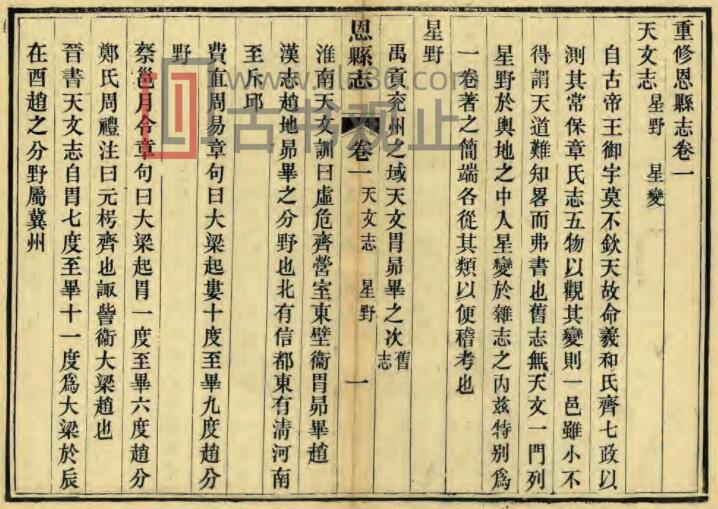 重修恩縣志卷一
天文志 星野 星變
自古帝王御宇莫不欽天故命羲和氏齊七政以
測其常保章氏志五物以觀其變則一邑雖小不
得謂天道難知畧而弗書也舊志無天文一門列
星野於輿地之中入星變於雜志之內茲特別爲
一卷著之簡端各從其類以便稽考也
星野
禹貢兗州之域天文胃昴畢之次舊志
恩縣志 卷一 天文志 星野 一
淮南天文訓曰虛危齊營室東壁衞胃昴畢趙
漢志趙地昴畢之分野也北有信都東有淸河南
至斥邱
費直周易章句曰大梁起婁十度至畢九度趙分
野
蔡邕月令章句曰大梁起胃一度至畢六度趙分
鄭氏周禮注曰元枵齊也諏訾衞大梁趙也
晉書天文志自胃七度至畢十一度爲大梁於辰
在酉趙之分野屬冀州
古籍觀止